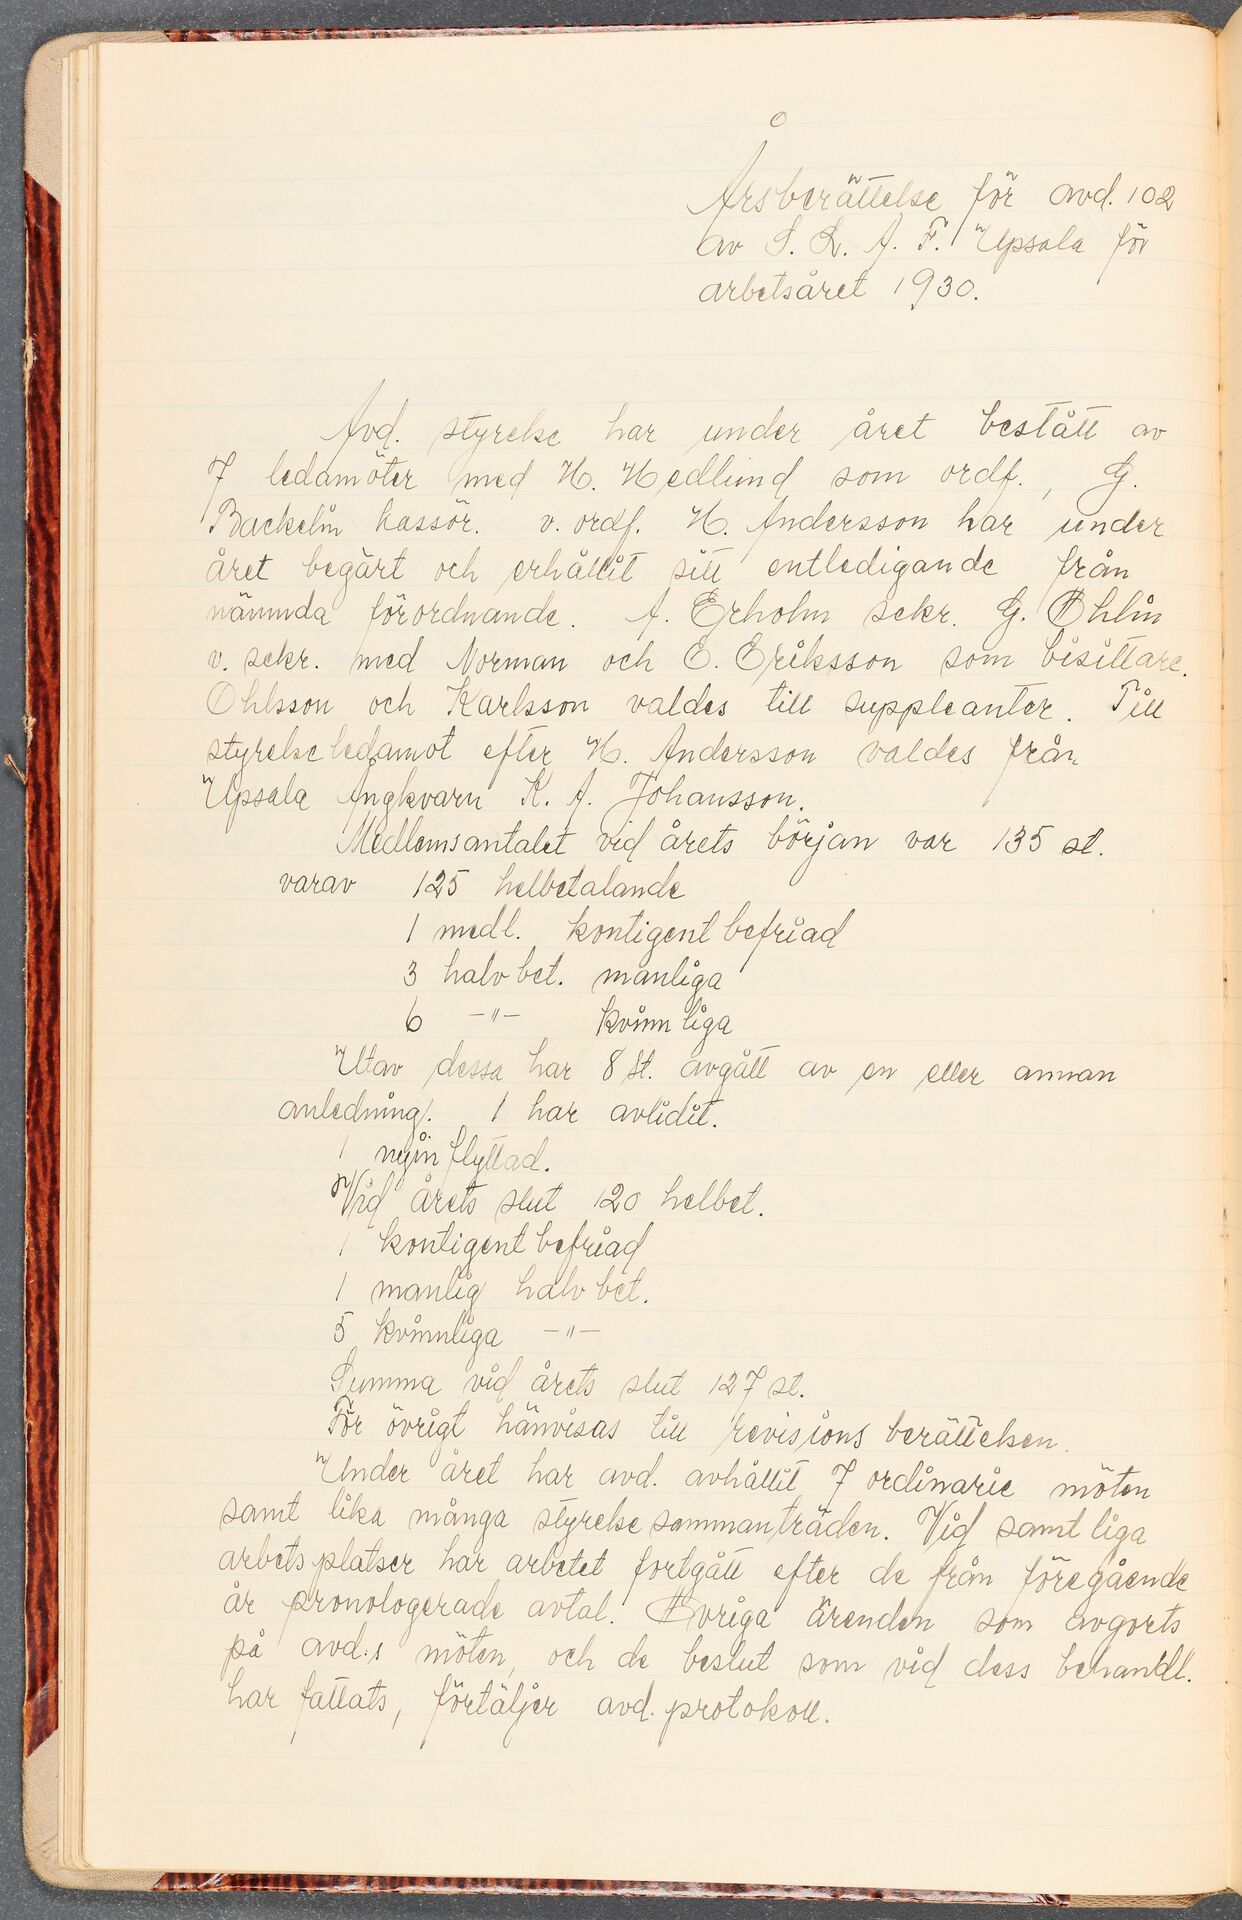 Årsberättelse för avd. 102
av S. L. A. F. Upsala för
arbetsåret 1930.
Avd. styrelse har under året bestått av
7 ledamöter med H. Hedlund som ordf., G.
Backelin kassör. v. ordf. H. Andersson har under
året begärt och erhållit sitt entledigande från
nämnda förordnande. A. Erholm sekr. G. Öhlin
v. sekr. med Norman och E. Eriksson som bisittare.
Ohlsson och Karlsson valdes till suppleanter. Till
styrelseledamot efter H. Andersson valdes från
Upsala Ångkvarn K. A. Johansson.
Medlemsantalet vid årets början var 135 st.
varav 125 helbetalande
1 medl. kontigent befriad
3 halv bet. manliga
6 -"- kvinnliga
Utav dessa har 8 st. avgått av en eller annan
anledning. 1 har avlidit.
1 nyinflyttad.
Vid årets slut 120 helbet.
1 kontigent befriad
1 manlig halv bet.
5 kvinnliga -"-
Summa vid årets slut 127 st.
För övrigt hänvisas till revisions berättelsen.
Under året har avd. avhållit 7 ordinarie möten
samt lika många styrelse sammanträden. Vid samtliga
arbetsplatser har arbetet fortgått efter de från föregående
år pronologerade avtal. Övriga ärenden som avgorts
på avd:s möten, och de beslut som vid dess behandl.
har fattats, förtäljer avd. protokoll.